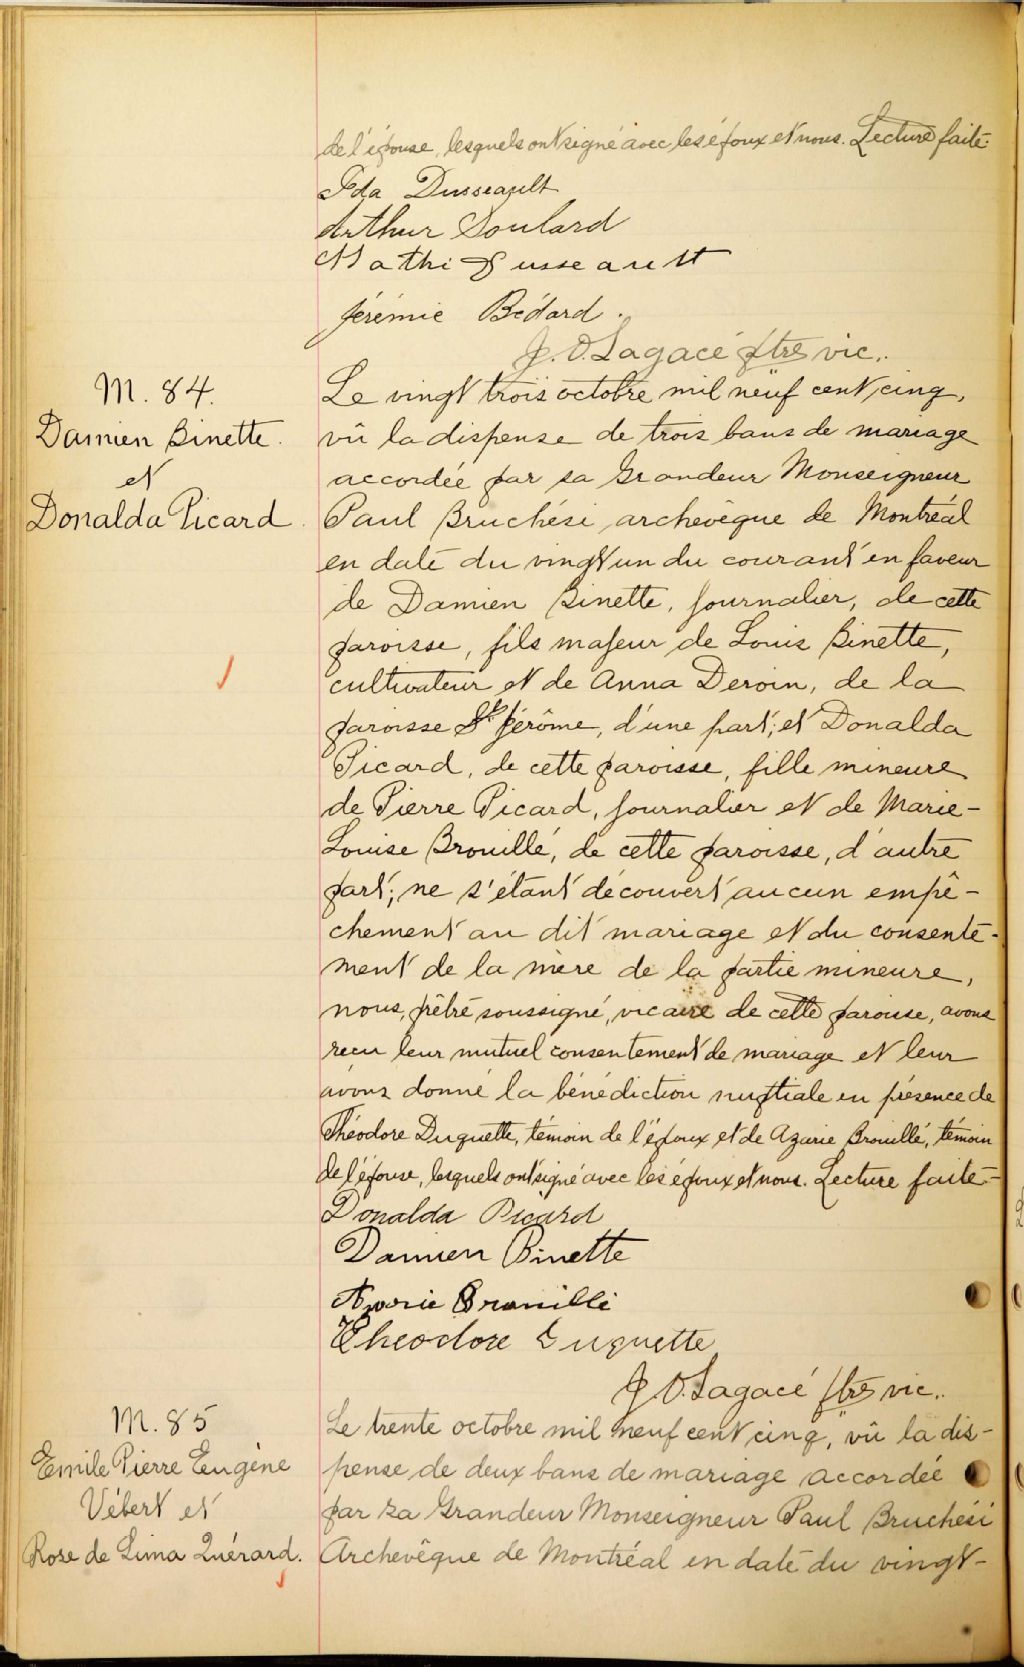 de l'épouse, lesquels ont signé avec les époux et nous. Lecture faite.
Ida Dusseault
Arthur Soulard
Mathi Dusseault
Jérémie Bédard.
J. O. Lagacé ptre vic.
M. 84.
Damien Binette.
et
Donalda Picard.
Le vingt trois octobre mil neuf cent cinq,
vû la dispense de trois bans de mariage
accordée par sa Grandeur Monseigneur
Paul Bruchési, archevêque de Montréal
en date du vingt un du courant en faveur
de Damien Binette, journalier, de cette
paroisse, fils majeur de Louis Binette,
cultivateur et de Anna Deroin, de la
paroisse St Jérôme, d'une part; et Donalda
Picard, de cette paroisse, fille mineure
de Pierre Picard, journalier et de Marie-
Louise Brouillé, de cette paroisse, d'autre
part; ne s'étant découvert aucun empê-
chement au dit mariage et du consente-
ment de la mère de la partie mineure,
nous, prêtre soussigné, vicaire de cette paroisse, avons
reçu leur mutuel consentement de mariage et leur
avons donné la bénédiction nuptiale en présence de
Théodore Duquette, témoin de l'époux et de Azarie Brouillé, témoin
de l'épouse, lesquels ont signé avec les époux et nous. Lecture faite.
Donalda Picard
Damien Binette
Azarie Brouillé
Theodore Duquette
J. O. Lagacé ptre vic.
M. 85
Emile Pierre Eugène
Vébert et
Rose de Lima Quérard.
Le trente octobre mil neuf cent cinq, vû la dis-
pense de deux bans de mariage accordée
par sa Grandeur Monseigneur Paul Bruchési
Archevêque de Montréal en date du vingt-